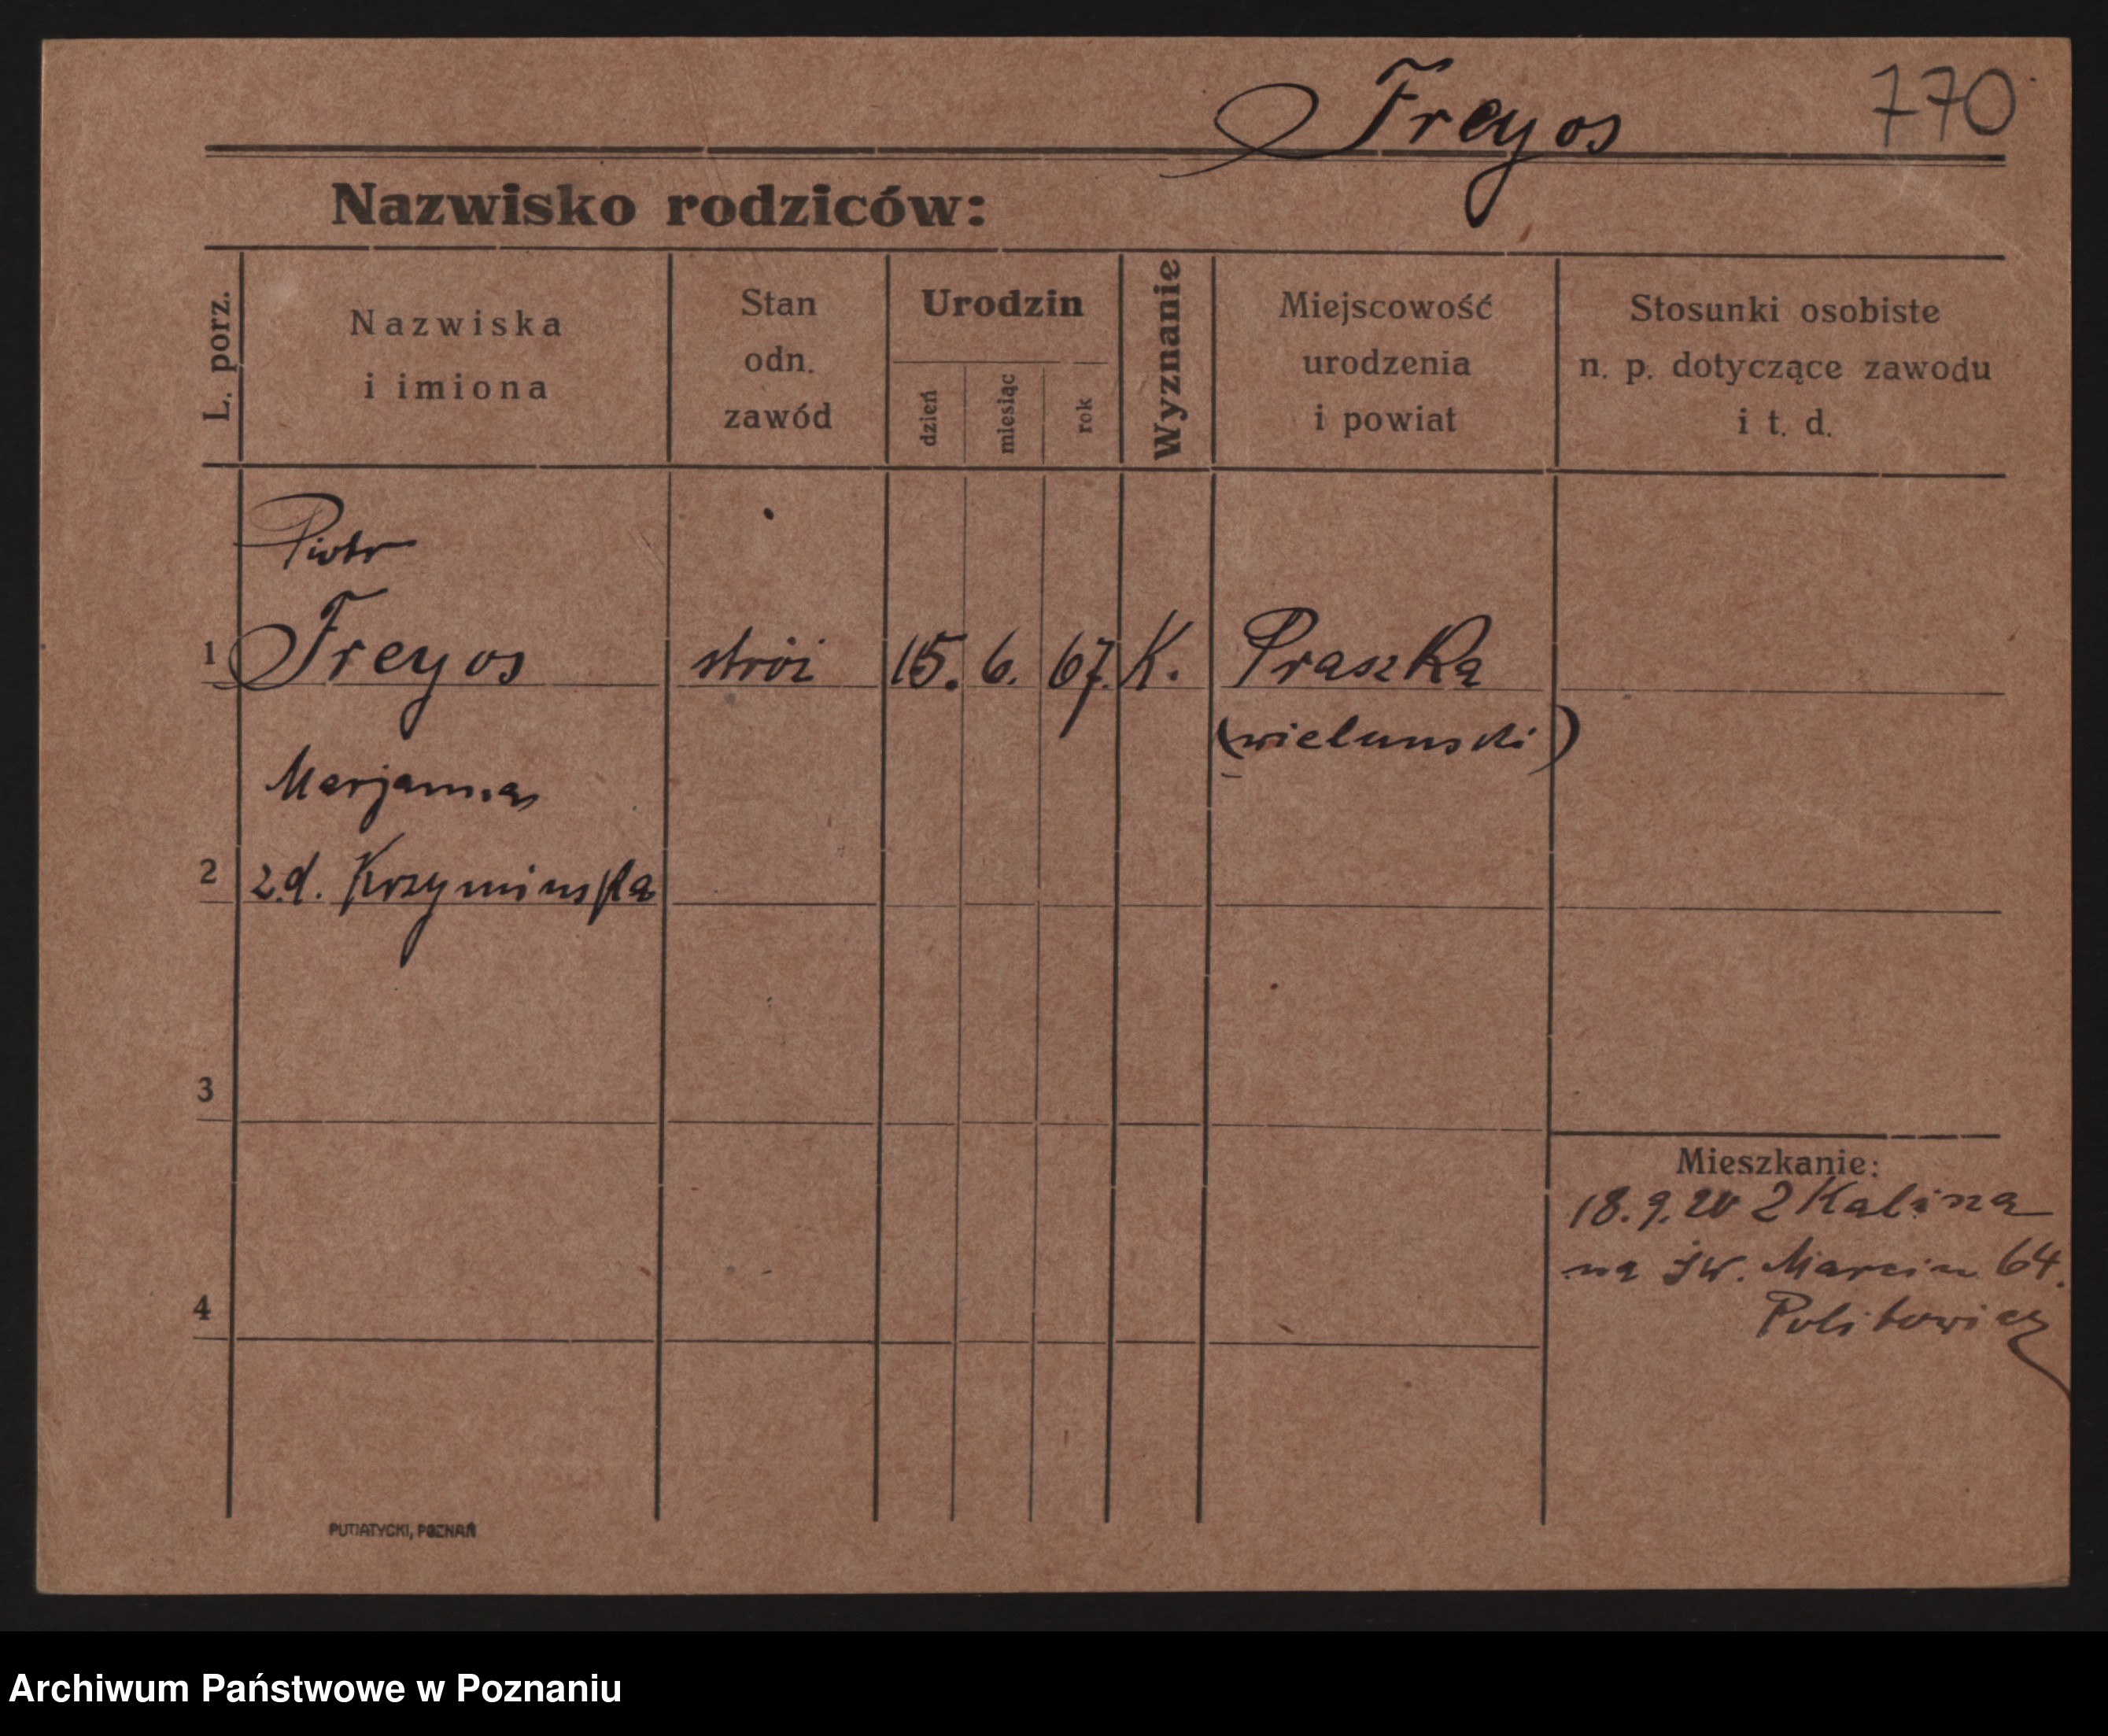 Freyos 770
Nazwisko rodziców:
L. porz.
Nazwiska
i imiona
Stan
odn.
zawód
Urodzin
dzień
miesiąc
rok
Wyznanie
Miejscowość
urodzenia
i powiat
Stosunki osobiste
n. p. dotyczące zawodu
i t. d.
Piotr
1 Freyos stróż 15. 6. 67. K. Praszka
(wielunski)
Marjanna
2 z.d. Krzyminska
3
Mieszkanie:
18.9.20 z Kalisza
na św. Marcin 64.
4
Politowicz
PUTIATYCKI, POZNAŃ
Archiwum Państwowe w Poznaniu